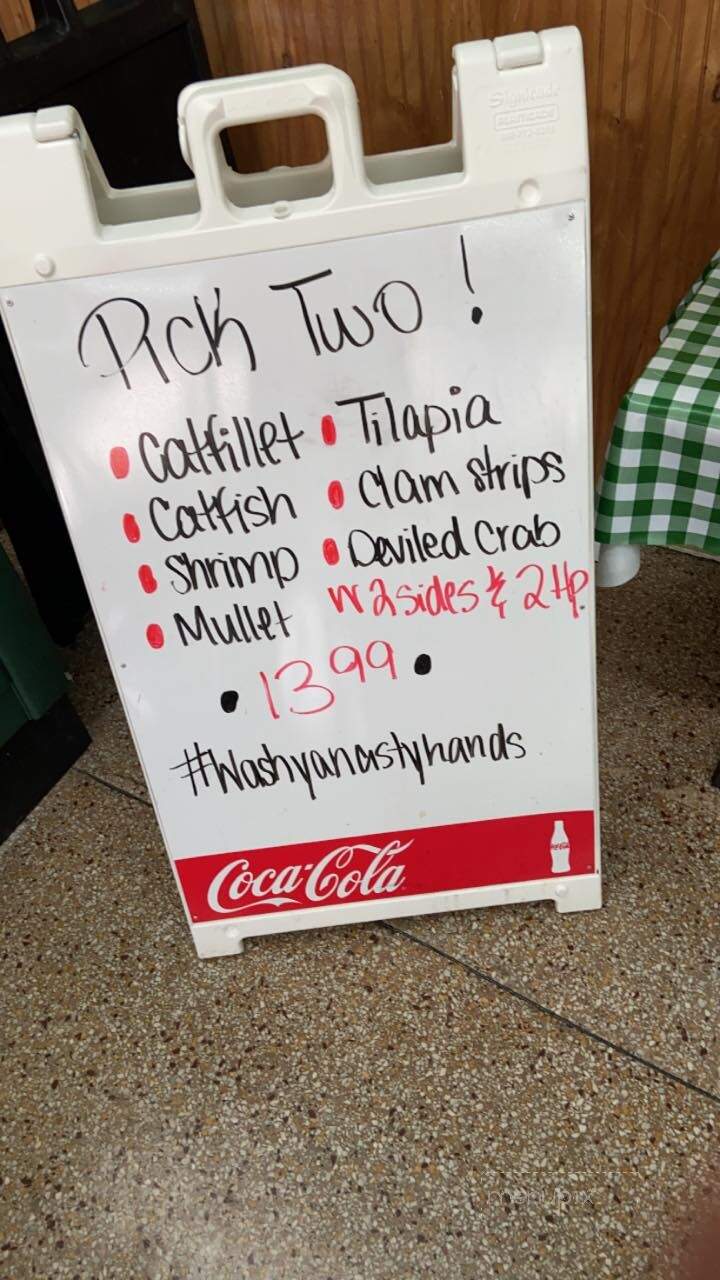 Pick Two!
Catfillet
Catfish
Shrimp
Mullet
Tilapia
Clam strips
Deviled Crab
w 2 sides & 2 Hp.
• 13 99 •
#Washyanastyhands
Coca-Cola
menupix